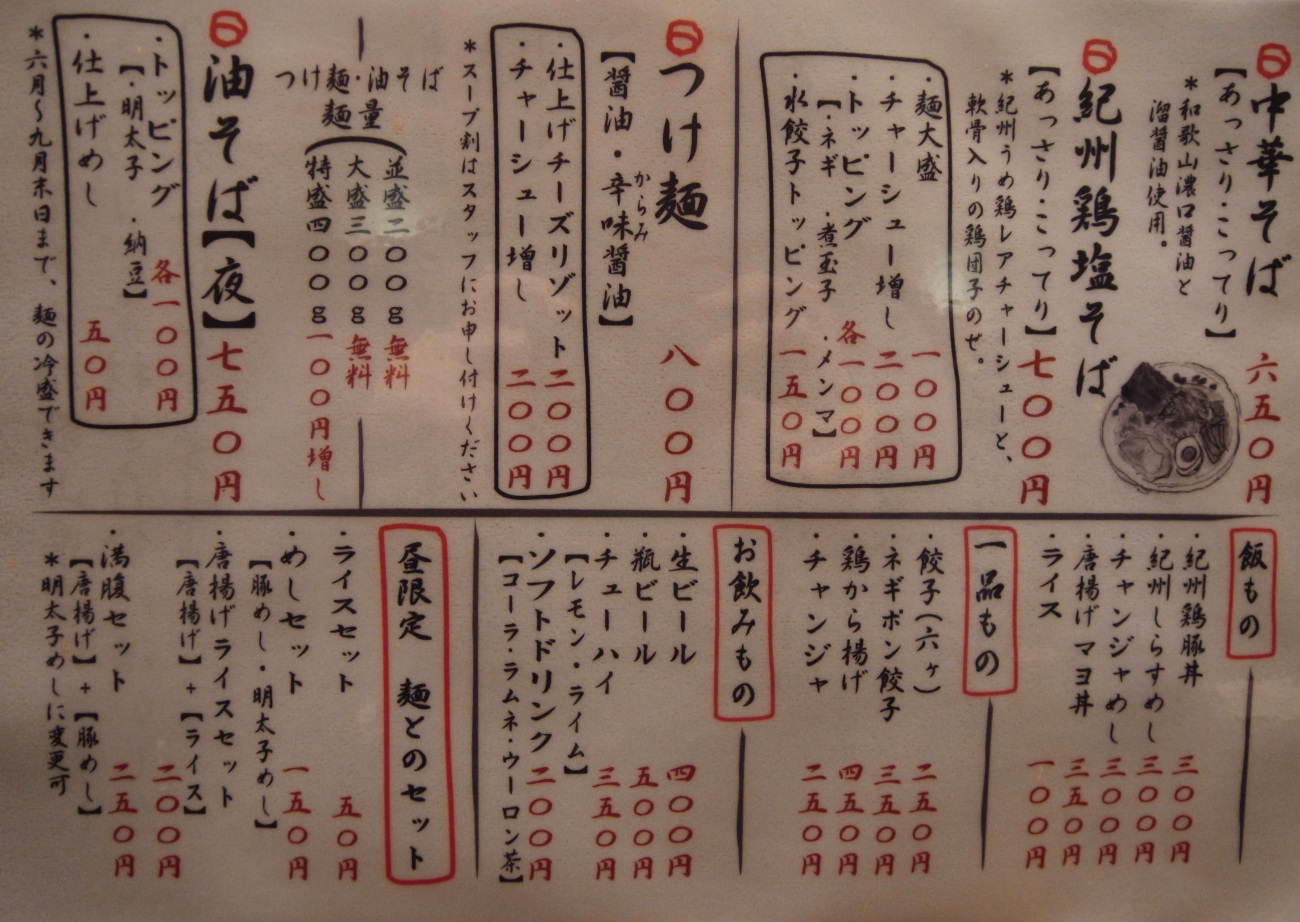 日 中華そば 六五〇円
【あっさり・こってり】
＊和歌山濃口醤油と
溜醤油使用。
日 紀州鶏塩そば
【あっさり・こってり】七〇〇円
＊紀州うめ鶏レアチャーシューと、
軟骨入りの鶏団子のせ。
・麺大盛 一〇〇円
・チャーシュー増し 二〇〇円
・トッピング 各一〇〇円
【・ネギ ・煮玉子 ・メンマ】
・水餃子トッピング 一五〇円
日 つけ麺 八〇〇円
【醤油・辛味醤油】
からみ
・仕上げチーズリゾット 二〇〇円
・チャーシュー増し 二〇〇円
＊スープ割はスタッフにお申し付けください
つけ麺・油そば
麺量
並盛二〇〇g 無料
大盛三〇〇g 無料
特盛四〇〇g 一〇〇円増し
日 油そば【夜】七五〇円
・トッピング 各一〇〇円
【・明太子 ・納豆】
・仕上げめし 五〇円
＊六月〜九月末日まで、麺の冷盛できます
飯もの
・紀州鶏豚丼 三〇〇円
・紀州しらすめし 三〇〇円
・チャンジャめし 三〇〇円
・唐揚げマヨ丼 三五〇円
・ライス 一〇〇円
一品もの
・餃子(六ヶ) 二五〇円
・ネギポン餃子 三五〇円
・鶏から揚げ 四五〇円
・チャンジャ 二五〇円
お飲みもの
・生ビール 四〇〇円
・瓶ビール 五〇〇円
・チューハイ 三五〇円
【レモン・ライム】
・ソフトドリンク 二〇〇円
【コーラ・ラムネ・ウーロン茶】
昼限定 麺とのセット
・ライスセット 五〇円
・めしセット 一五〇円
【豚めし・明太子めし】
・唐揚げライスセット
【唐揚げ】＋【ライス】 二〇〇円
・満腹セット 二五〇円
【唐揚げ】＋【豚めし】
＊明太子めしに変更可